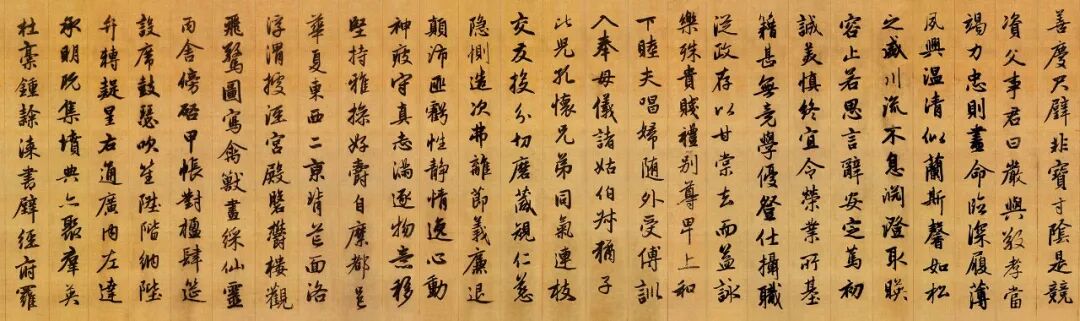 善慶尺璧非寶寸陰是競
資父事君曰嚴與敬孝當
竭力忠則盡命臨深履薄
夙興温清似蘭斯馨如松
之盛川流不息淵澄取暎
容止若思言辭安定篤初
誠美慎終宜令榮業所基
籍甚無竟學優登仕攝職
從政存以甘棠去而益詠
樂殊貴賤禮別尊卑上和
下睦夫唱婦随外受傅訓
入奉母儀諸姑伯叔猶子
比兒孔懷兄弟同氣連枝
交友投分切磨箴規仁慈
隐惻造次弗離節義廉退
顛沛匪虧性静情逸心動
神疲守真志滿逐物意移
堅持雅操好爵自縻都邑
華夏東西二京背芒面洛
浮渭據涇宮殿盤欝樓觀
飛驚圖寫禽獸畫綵仙靈
丙舍傍啓甲帳對楹肆筵
設席鼓瑟吹笙陞階納陛
弁轉疑星右通廣内左達
承明既集墳典亦聚羣英
杜稾鍾隸漆書壁經府羅